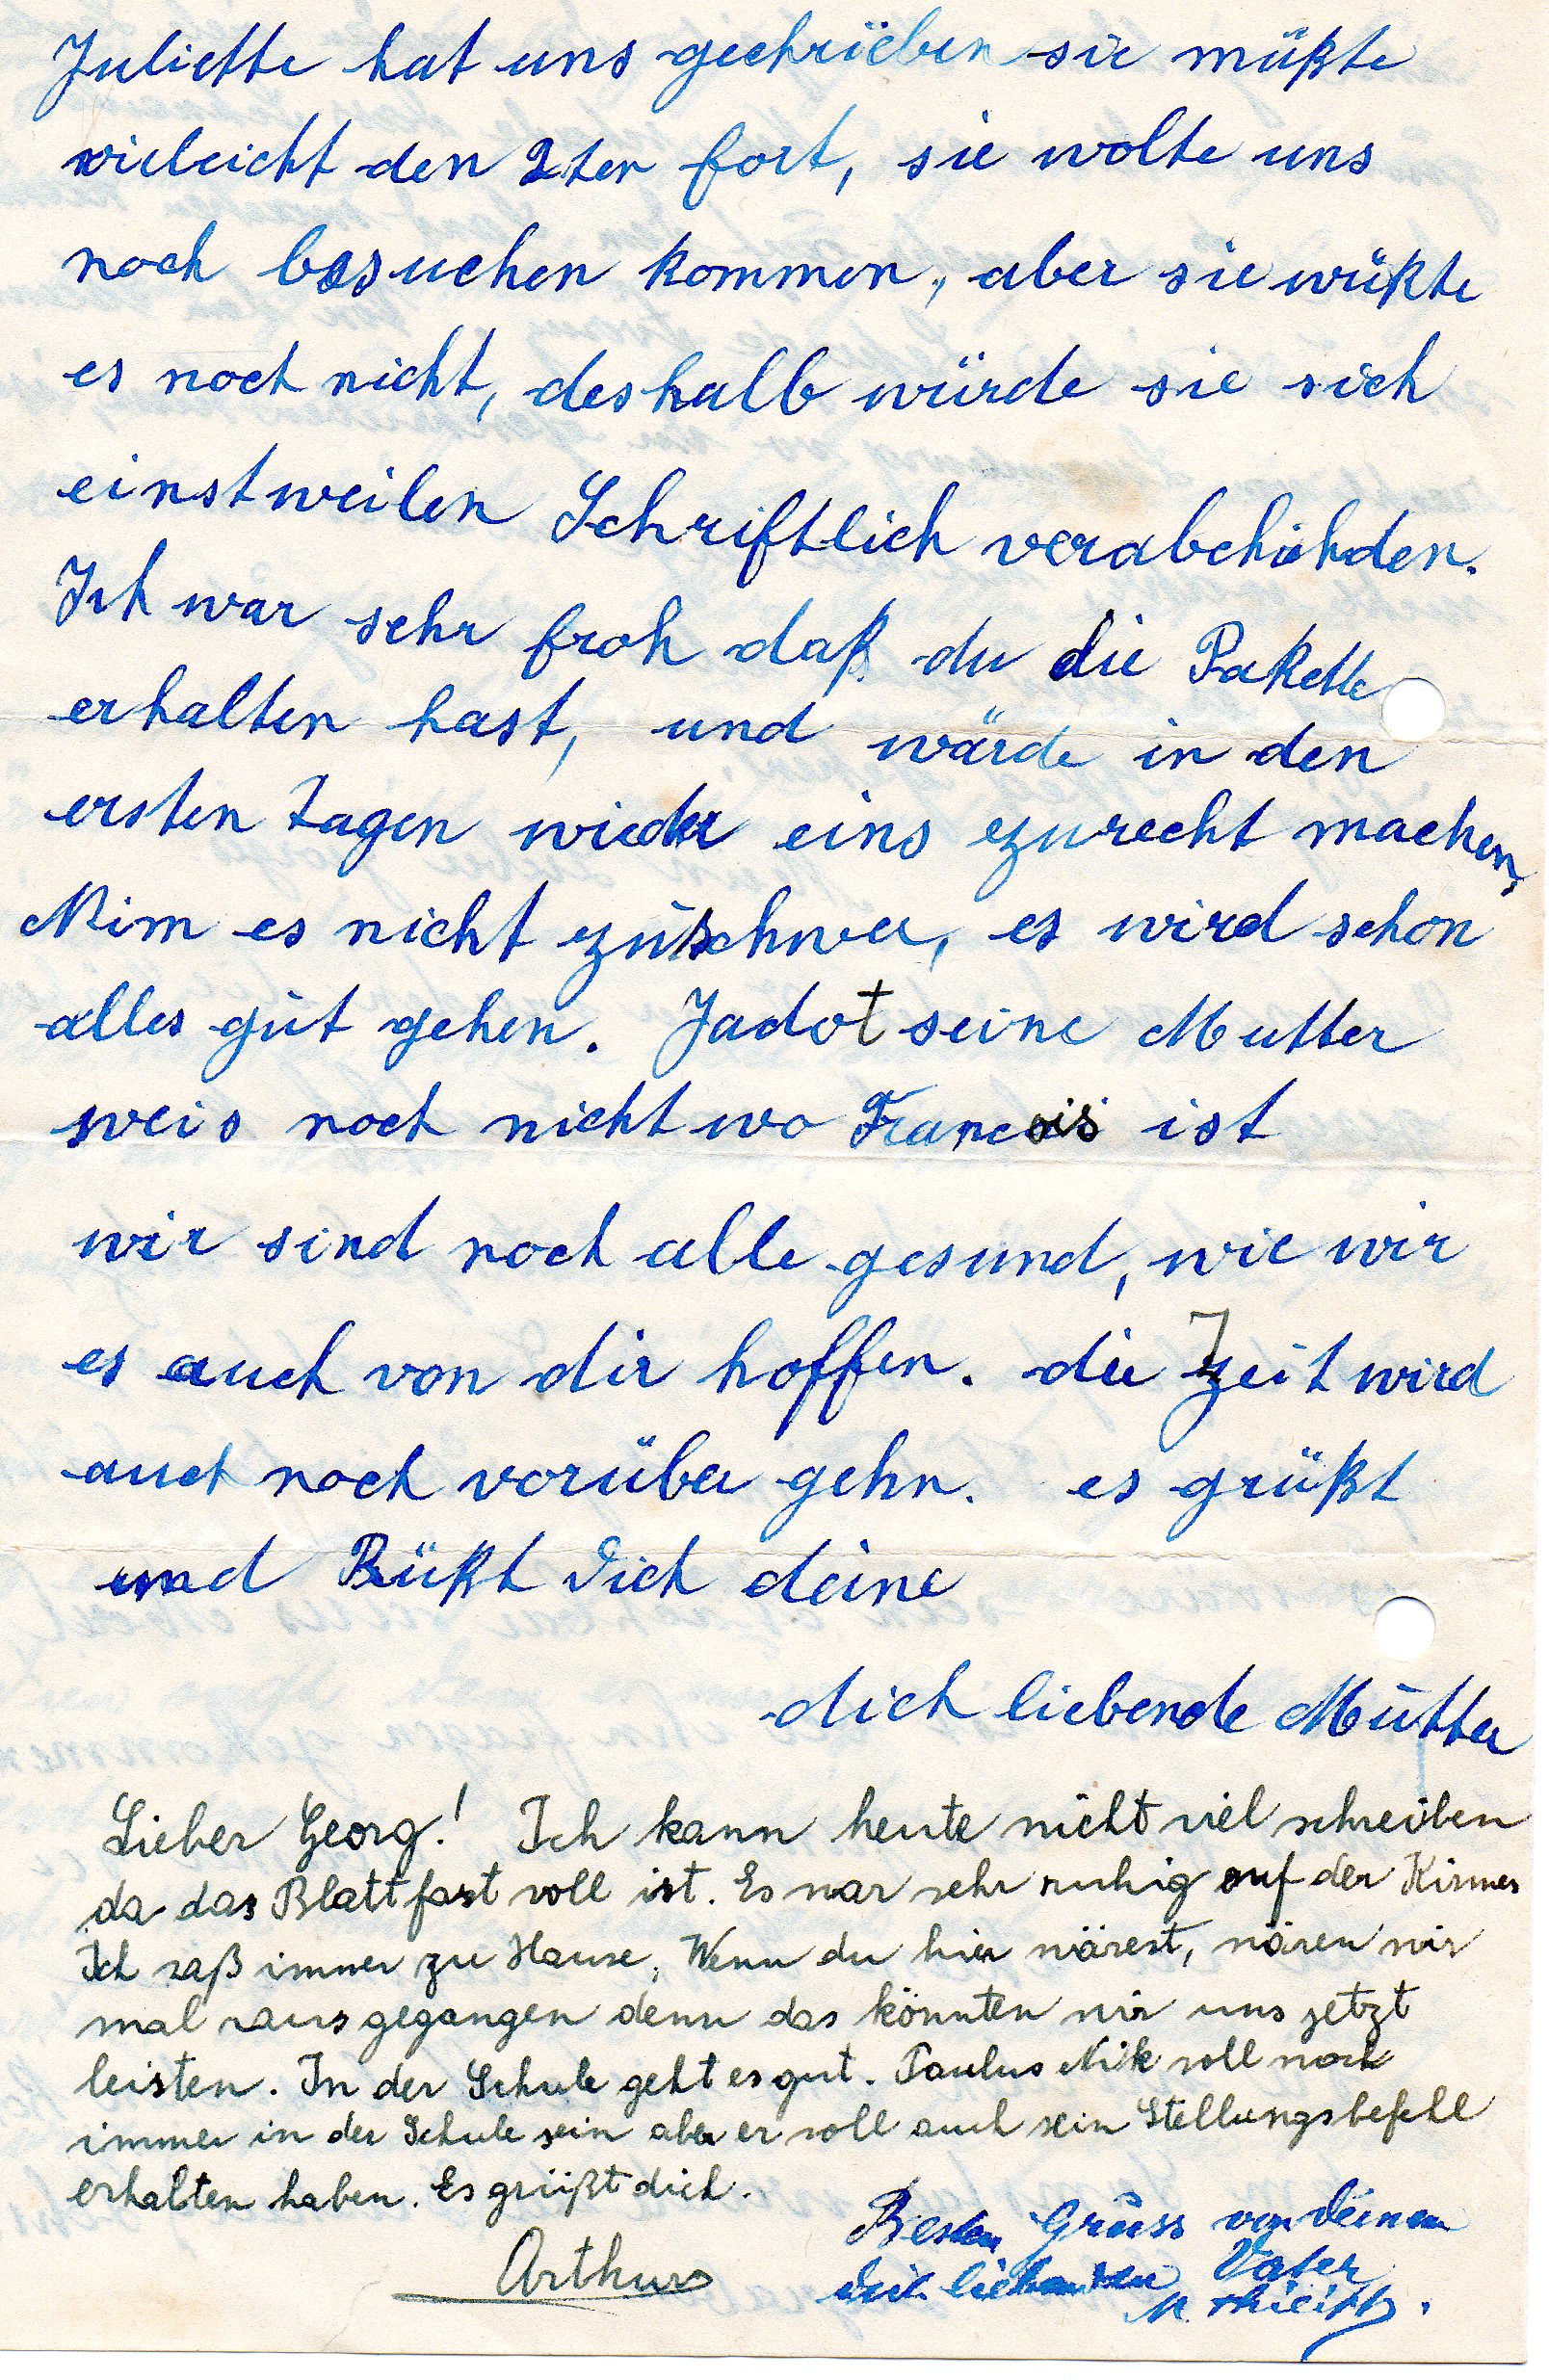 Juliette hat uns gechrieben sie müßte
vieleicht den 2ten fort, sie wolte uns
noch besuchen kommen, aber sie wüßte
es noch nicht, deshalb würde sie sich
einstweilen Schriftlich verabchihden.
Ich war sehr froh daß du die Pakette
erhalten hast, und wärde in den
ersten Tagen wieder eins zurecht machen,
Nim es nicht zu schwer, es wird schon
alles gut gehen. Jadot seine Mutter
weis noch nicht wo Francois ist
wir sind noch alle gesund, wie wir
es auch von dir hoffen. die Zeit wird
auch noch vorüber gehn. es grüßt
und Küßt dich deine
dich liebende Mutter
Lieber Georg! Ich kann heute nicht viel schreiben
da das Blatt fast voll ist. Es war sehr ruhig auf der Kirmes
Ich saß immer zu Hause, Wenn du hier wärest, wären wir
mal raus gegangen denn das könnten wir uns jetzt
leisten. In der Schule geht es gut. Paulus Nik soll noch
immer in der Schule sein aber er soll auch sein Stellungsbefehl
erhalten haben. Es grüßt dich.
Arthur
Besten Gruss von deinem
dich liebenden Vater